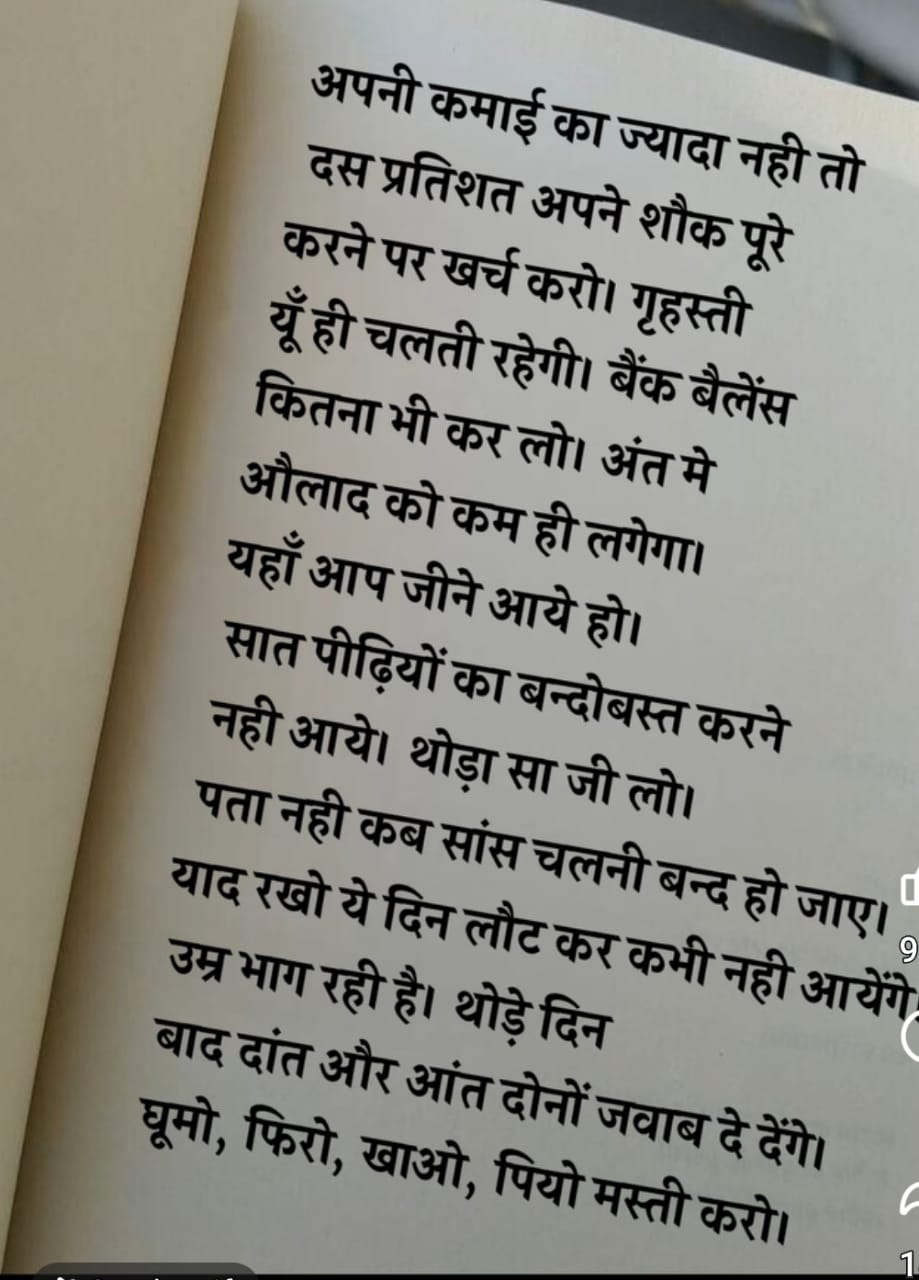 अपनी कमाई का ज्यादा नही तो
दस प्रतिशत अपने शौक पूरे
करने पर खर्च करो। गृहस्ती
यूँ ही चलती रहेगी। बैंक बैलेंस
कितना भी कर लो। अंत मे
औलाद को कम ही लगेगा।
यहाँ आप जीने आये हो।
सात पीढ़ियों का बन्दोबस्त करने
नही आये। थोड़ा सा जी लो।
पता नही कब सांस चलनी बन्द हो जाए।
याद रखो ये दिन लौट कर कभी नही आयेंगे।
उम्र भाग रही है। थोड़े दिन
बाद दांत और आंत दोनों जवाब दे देंगे।
घूमो, फिरो, खाओ, पियो मस्ती करो।